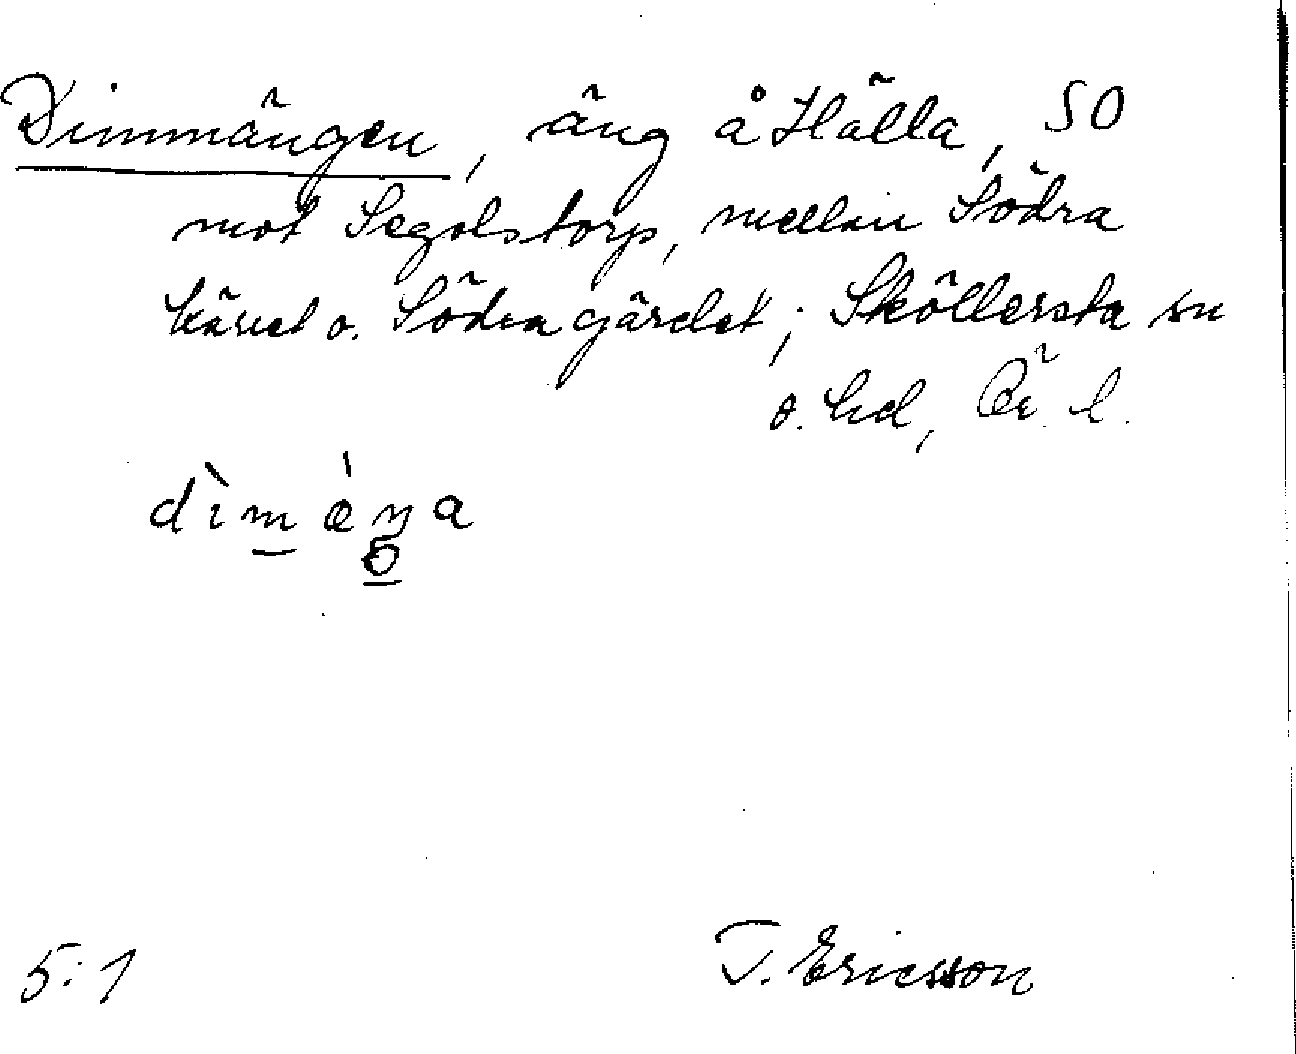 Dimmängen, äng å Hälla, SO
mot Segolstorp, mellan Södra
käret o. Södra gärdet; Sköllersta sn
o. hd, Ör. l.
dìmǽŋa
5:1 T. Ericsson